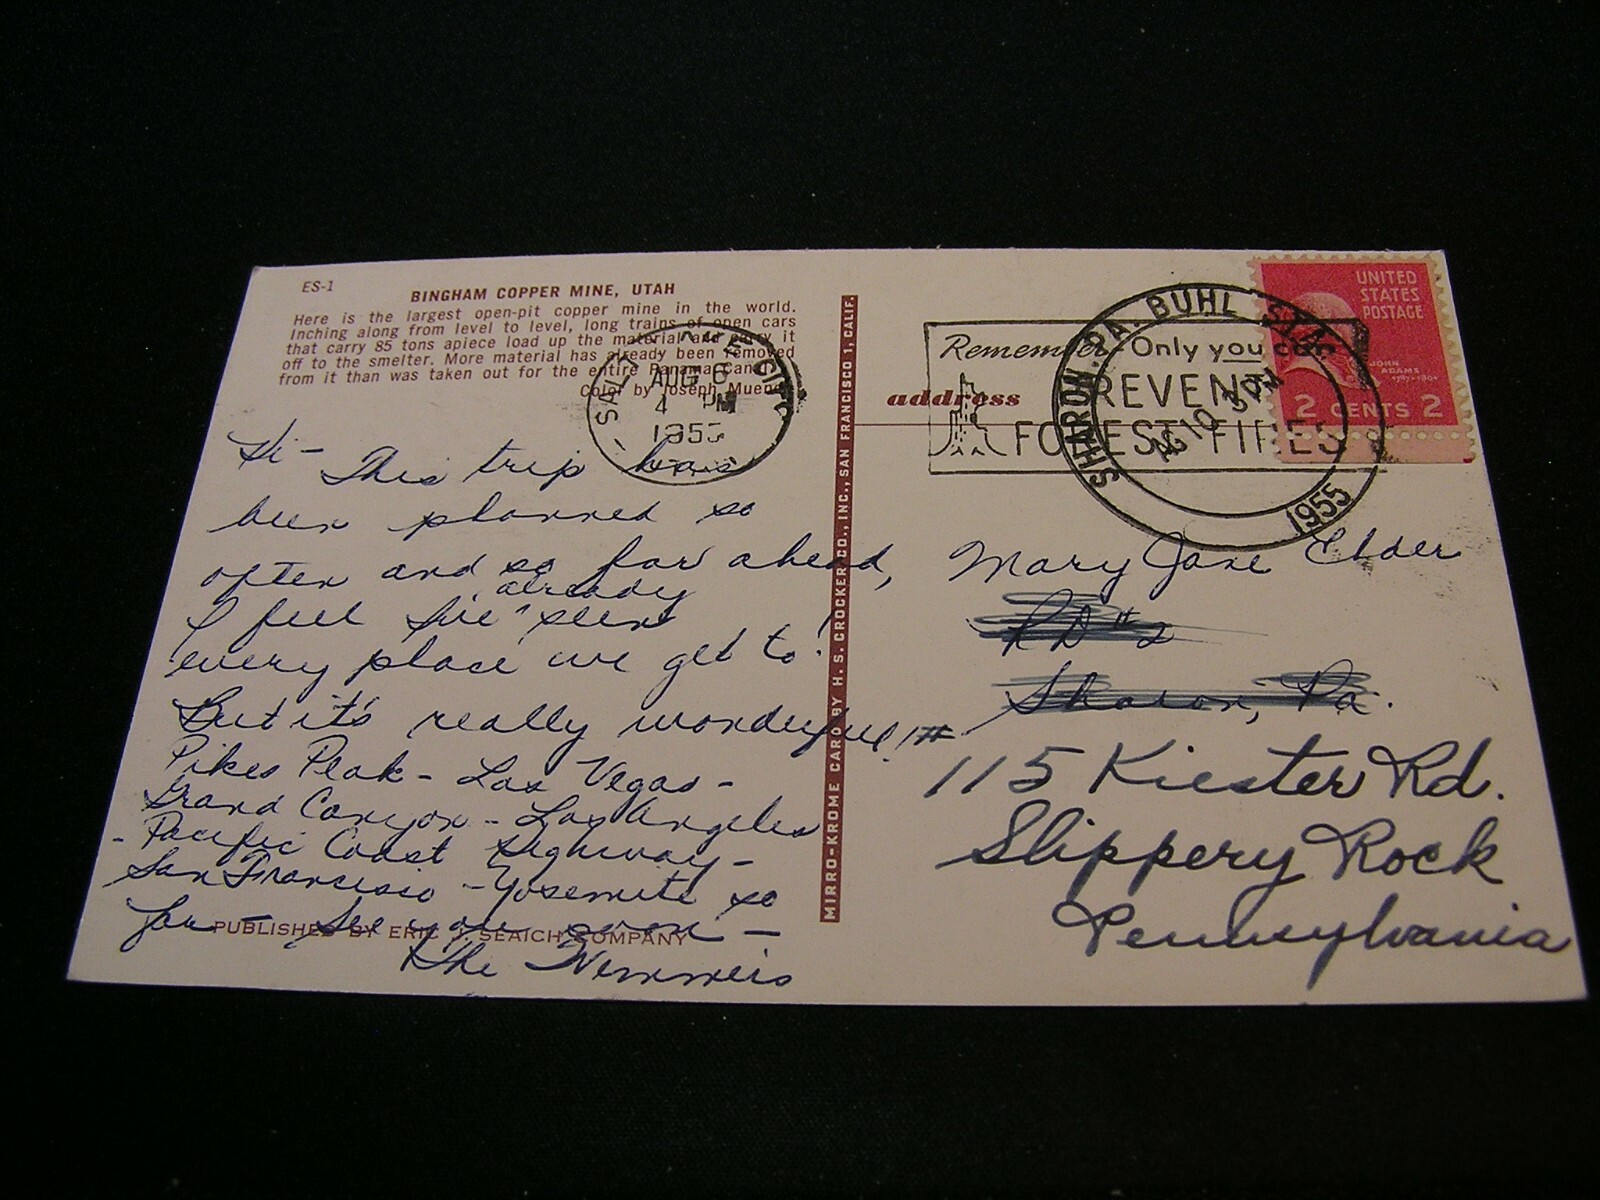 ES-1
BINGHAM COPPER MINE, UTAH
Here is the largest open-pit copper mine in the world.
Inching along from level to level, long trains of open cars
that carry 85 tons apiece load up the material and carry it
off to the smelter. More material has already been removed
from it than was taken out for the entire Panama Canal.
Color by Joseph Muench
SALT LAKE CITY
AUG 6
4 PM
1955
Hi - This trip has
been planned so
often and so far ahead,
already
I feel I've " seen
every place we get to!
But it's really wonderful!!
Pikes Peak - Las Vegas -
Grand Canyon - Los Angeles
- Pacific Coast Highway -
San Francisco - Yosemite so
far - See you soon -
PUBLISHED BY ERIC J. SEAICH COMPANY
The
MIRRO-KROME CARD BY H. S. CROCKER CO., INC., SAN FRANCISCO 1, CALIF.
address
Remember - Only you can
PREVENT
FOREST FIRES
SHARON. PA. BUHL
AUG 10
1955
UNITED
STATES
POSTAGE
JOHN
ADAMS
2 CENTS 2
Mary Jane Elder
RD #2
Sharon, Pa.
115 Kiester Rd.
Slippery Rock
Pennsylvania